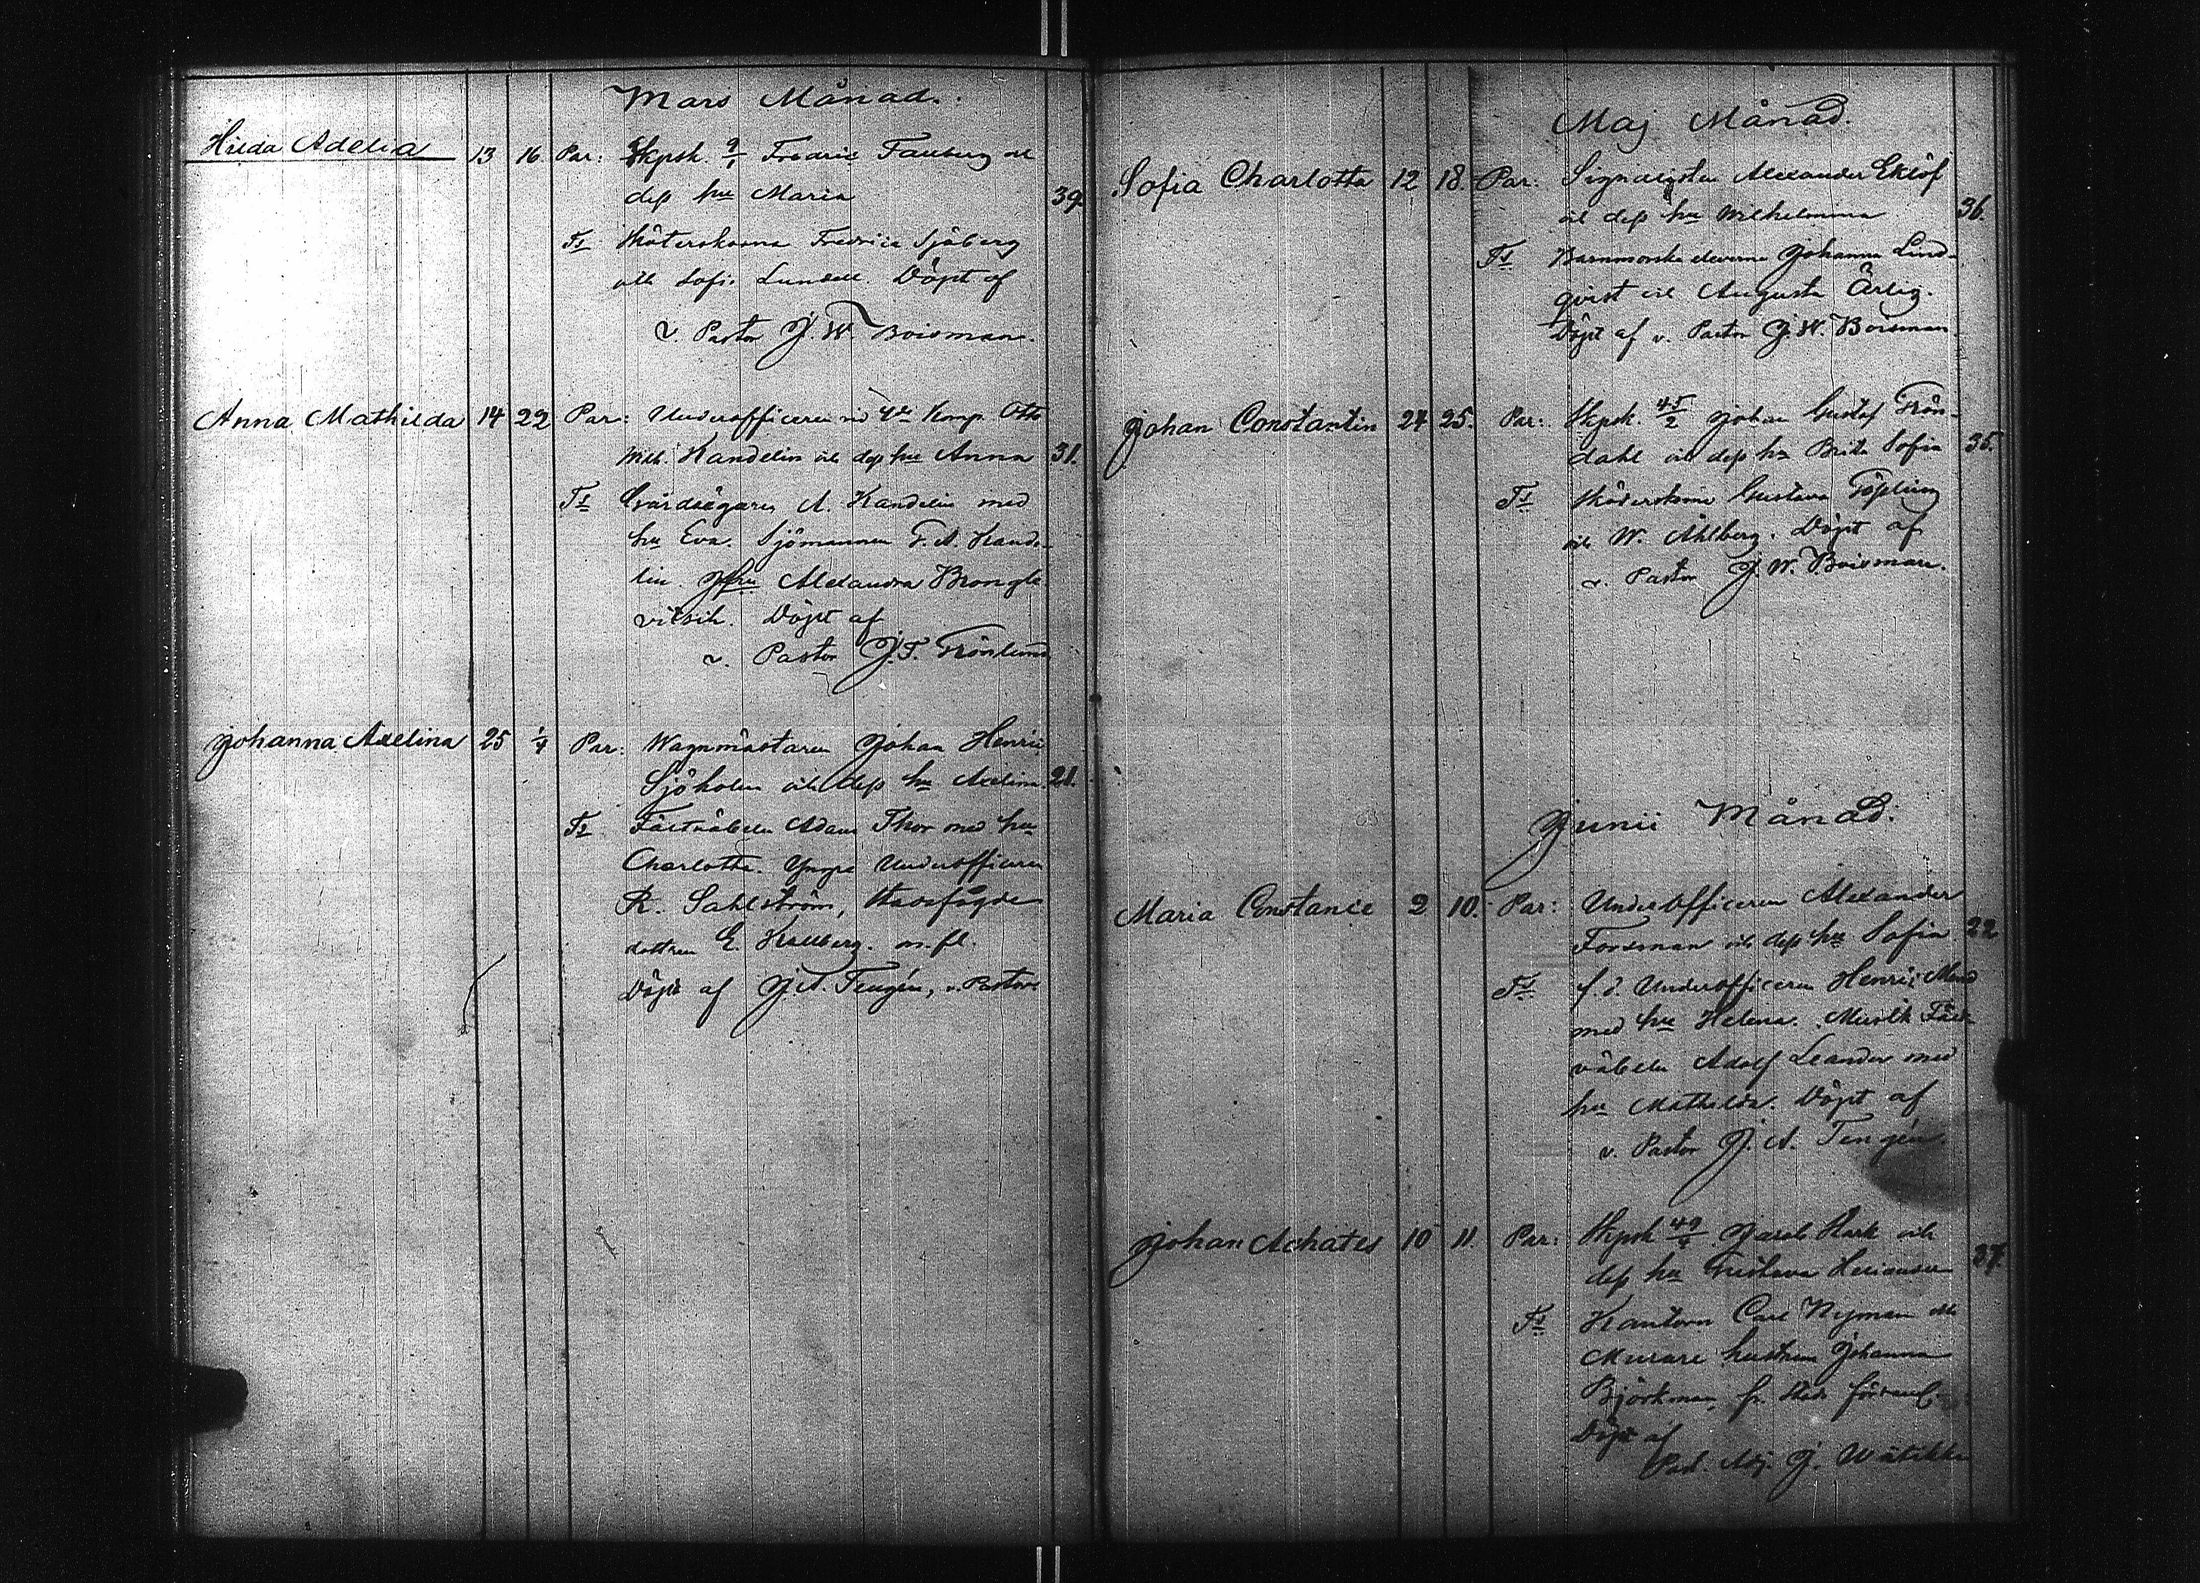 Mars Månad.
Hilda Adelia 13 16 Par: Skpsk. 9/1 Fredric Fallberg och
dess hu Maria 39
Ts Sköterskorna Fredrica Sjöberg
och Sofi. Lundell. Döpt af
v. Pastor J. W. Boisman.
Anna Mathilda 14 22 Par: Underofficeren vid 4de Komp. Otto
Wilh. Kandelin och dess hu Anna 31.
Ts Gårdsägaren A. Kandelin med
hu Eva. Sjömannen F. A. Kande-
lin. Jfru Alexandra
Döpt af
v. Pastor J. F. Grönlund
Johanna Axelina 25 1/4 Par: Wagnmästaren Johan Henric
Sjöholm och dess hu Axelina 21.
Ts Fältväbeln Adam Thor med hu
Charlotta. Yngre Underofficeren
R. Sahlström,
dottren E. Kullberg. m. fl.
Döpt af J. A. Tengén, v. Pastor
Maj Månad.
Sofia Charlotta 12 18. Par: Signalisten Alexander Eklöf
och dess hu Wilhelmina 36.
Ts Barnmorske eleverne Johanna Lind-
qvist och Augusta Ärlig.
Döpt af v. Pastor J. W. Boisman
Johan Constantin 24 25. Par: Skpsk. 45/2 Johan Gustaf Grön-
dahl och dess hu Brita Sofia 35.
Ts Sköterskorne Gustava
och W. Åhlberg. Döpt af
v. Pastor J. W. Boisman.
Junii Månad.
Maria Constance 2 10. Par: Underofficeren Alexander
Forsman och dess hu Sofia 22
Ts f. d. Underofficeren Henric
med hu Helena. Musik Fält-
väbeln Adolf Leander med
hu Mathilda. Döpt af
v. Pastor J. A. Tengén.
Johan Achates 10 11. Par: Skpsk Jacob Stark och
dess hu Gustava 37.
Ts Kantorn Carl Nyman och
Murare hustrun Johanna
Björkman, fr.
Döpt af
Past. Adj. J. Wätikka